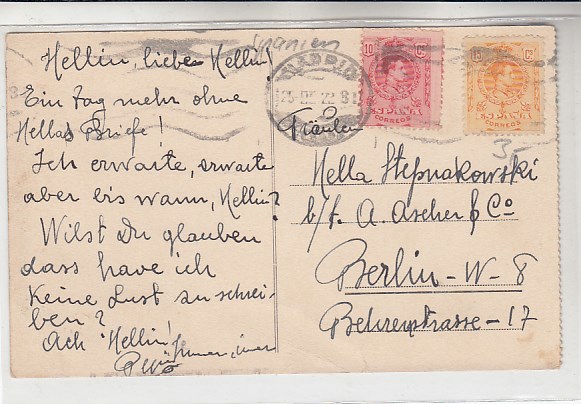 Hellin, lieben Hellin!
Ein Tag mehr ohne
Hellas Briefe!
Ich erwarte, erwarte
aber bis wann, Hellin?
Wilst Du glauben
dass have ich
keine Lust zu schrei-
ben?
Ach Hellin!
Spanien
MADRID
10 Cs
15 Cs
ESPAÑA
CORREOS
ESPAÑA
CORREOS
Fräulein
Hella Stepnakowski
b/f. A. Ascher & Co
Berlin-W-8
Behrenstrasse-17